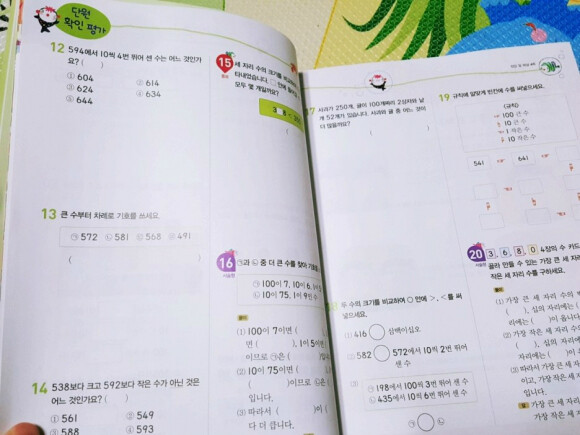 단원
확인 평가
12 594에서 10씩 4번 뛰어 센 수는 어느 것인가
요? ( )
① 604 ② 614
③ 624 ④ 634
⑤ 644
13 큰 수부터 차례로 기호를 쓰세요.
㉠ 572 ㉡ 581 ㉢ 568 ㉣ 491
( )
14 538보다 크고 592보다 작은 수가 아닌 것은
어느 것인가요? ( )
① 561 ② 549
③ 588 ④ 593
15 세 자리 수의 크기를 비교
나타냈습니다. 안에 들어
모두 몇 개일까요?
( )
16 ㉠과 ㉡ 중 더 큰 수를 찾아 기호를
㉠ 100이 7, 10이 6,
㉡ 10이 75, 1이 9인 수
풀이
(1) 100이 7이면 (
면 ( ), 1이 5이면
이므로 ㉠은 ( )입니
(2) 10이 75이면 (
( )이므로 ㉡은
입니다.
(3) 따라서 ( )이 (
다 더 큽니다.
17 사과가 250개, 귤이 100개짜리 2상자와 낱
개 52개가 있습니다. 사과와 귤 중 어느 것이
더 많을까요?
( )
18 두 수의 크기를 비교하여 ○ 안에 >, <를 써
넣으세요.
(1) 416 ○ 삼백이십오
(2) 582 ○ 572에서 10씩 2번 뛰어
센 수
(3) ㉠ 198에서 100씩 3번 뛰어 센 수
㉡ 435에서 10씩 6번 뛰어 센 수
㉠ ○ ㉡
19 규칙에 알맞게 빈칸에 수를 써넣으세요.
(규칙)
100 큰 수
10 큰 수
1 작은 수
10 작은 수
541 641
20 3, 6, 8, 0 4장의 수 카드
골라 만들 수 있는 가장 큰 세 자리
작은 세 자리 수를 구하세요.
풀이
(1) 가장 큰 세 자리 수의
( ), 십의 자리에는 (
리에는 ( )이 옵니다
(2) 가장 작은 세 자리 수의
( ), 십의 자리에는
리에는 ( )이
(3) 따라서 가장 큰 세 자리
이고, 가장 작은 세 자리
입니다.
답 가장 큰 세 자리
가장 작은 세